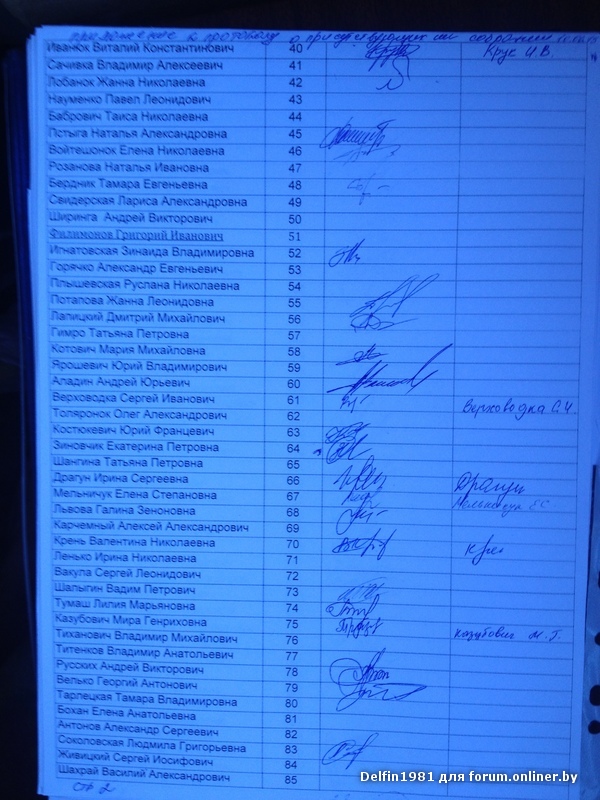 приложение к протоколу о присутствующих на собрании
Иванюк Виталий Константинович 40 Крук И.В.
Сачивка Владимир Алексеевич 41
Лобанок Жанна Николаевна 42
Науменко Павел Леонидович 43
Бабрович Таиса Николаевна 44
Пстыга Наталья Александровна 45
Войтешонок Елена Николаевна 46
Розанова Наталья Ивановна 47
Бердник Тамара Евгеньевна 48
Свидерская Лариса Александровна 49
Ширинга Андрей Викторович 50
Филимонов Григорий Иванович 51
Игнатовская Зинаида Владимировна 52
Горячко Александр Евгеньевич 53
Плышевская Руслана Николаевна 54
Потапова Жанна Леонидовна 55
Лапицкий Дмитрий Михайлович 56
Гимро Татьяна Петровна 57
Котович Мария Михайловна 58
Ярошевич Юрий Владимирович 59
Аладин Андрей Юрьевич 60
Верховодка Сергей Иванович 61 Верховодка С.И.
Толяронок Олег Александрович 62
Костюкевич Юрий Францевич 63
Зиновчик Екатерина Петровна 64
Шангина Татьяна Петровна 65
Драгун Ирина Сергеевна 66 Драгун
Мельничук Елена Степановна 67 Мельничук ЕС
Львова Галина Зеноновна 68
Карчемный Алексей Александрович 69
Крень Валентина Николаевна 70
Ленько Ирина Николаевна 71
Вакула Сергей Леонидович 72
Шалыгин Вадим Петрович 73
Тумаш Лилия Марьяновна 74
Казубович Мира Генриховна 75 Казубович М.Г.
Тиханович Владимир Михайлович 76
Титенков Владимир Анатольевич 77
Русских Андрей Викторович 78
Велько Георгий Антонович 79
Тарлецкая Тамара Владимировна 80
Бохан Елена Анатольевна 81
Антонов Александр Сергеевич 82
Соколовская Людмила Григорьевна 83
Живицкий Сергей Иосифович 84
Шахрай Василий Александрович 85
стр 2
Delfin1981 для forum.onliner.by